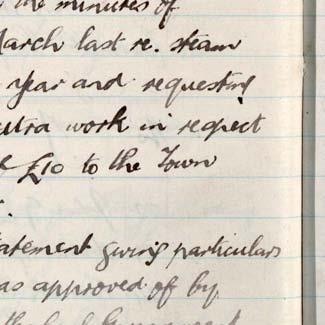 the minutes of
March last re. steam
year and requesting
extra work in respect
£10 to the Town
statement giving particulars
as approved of by